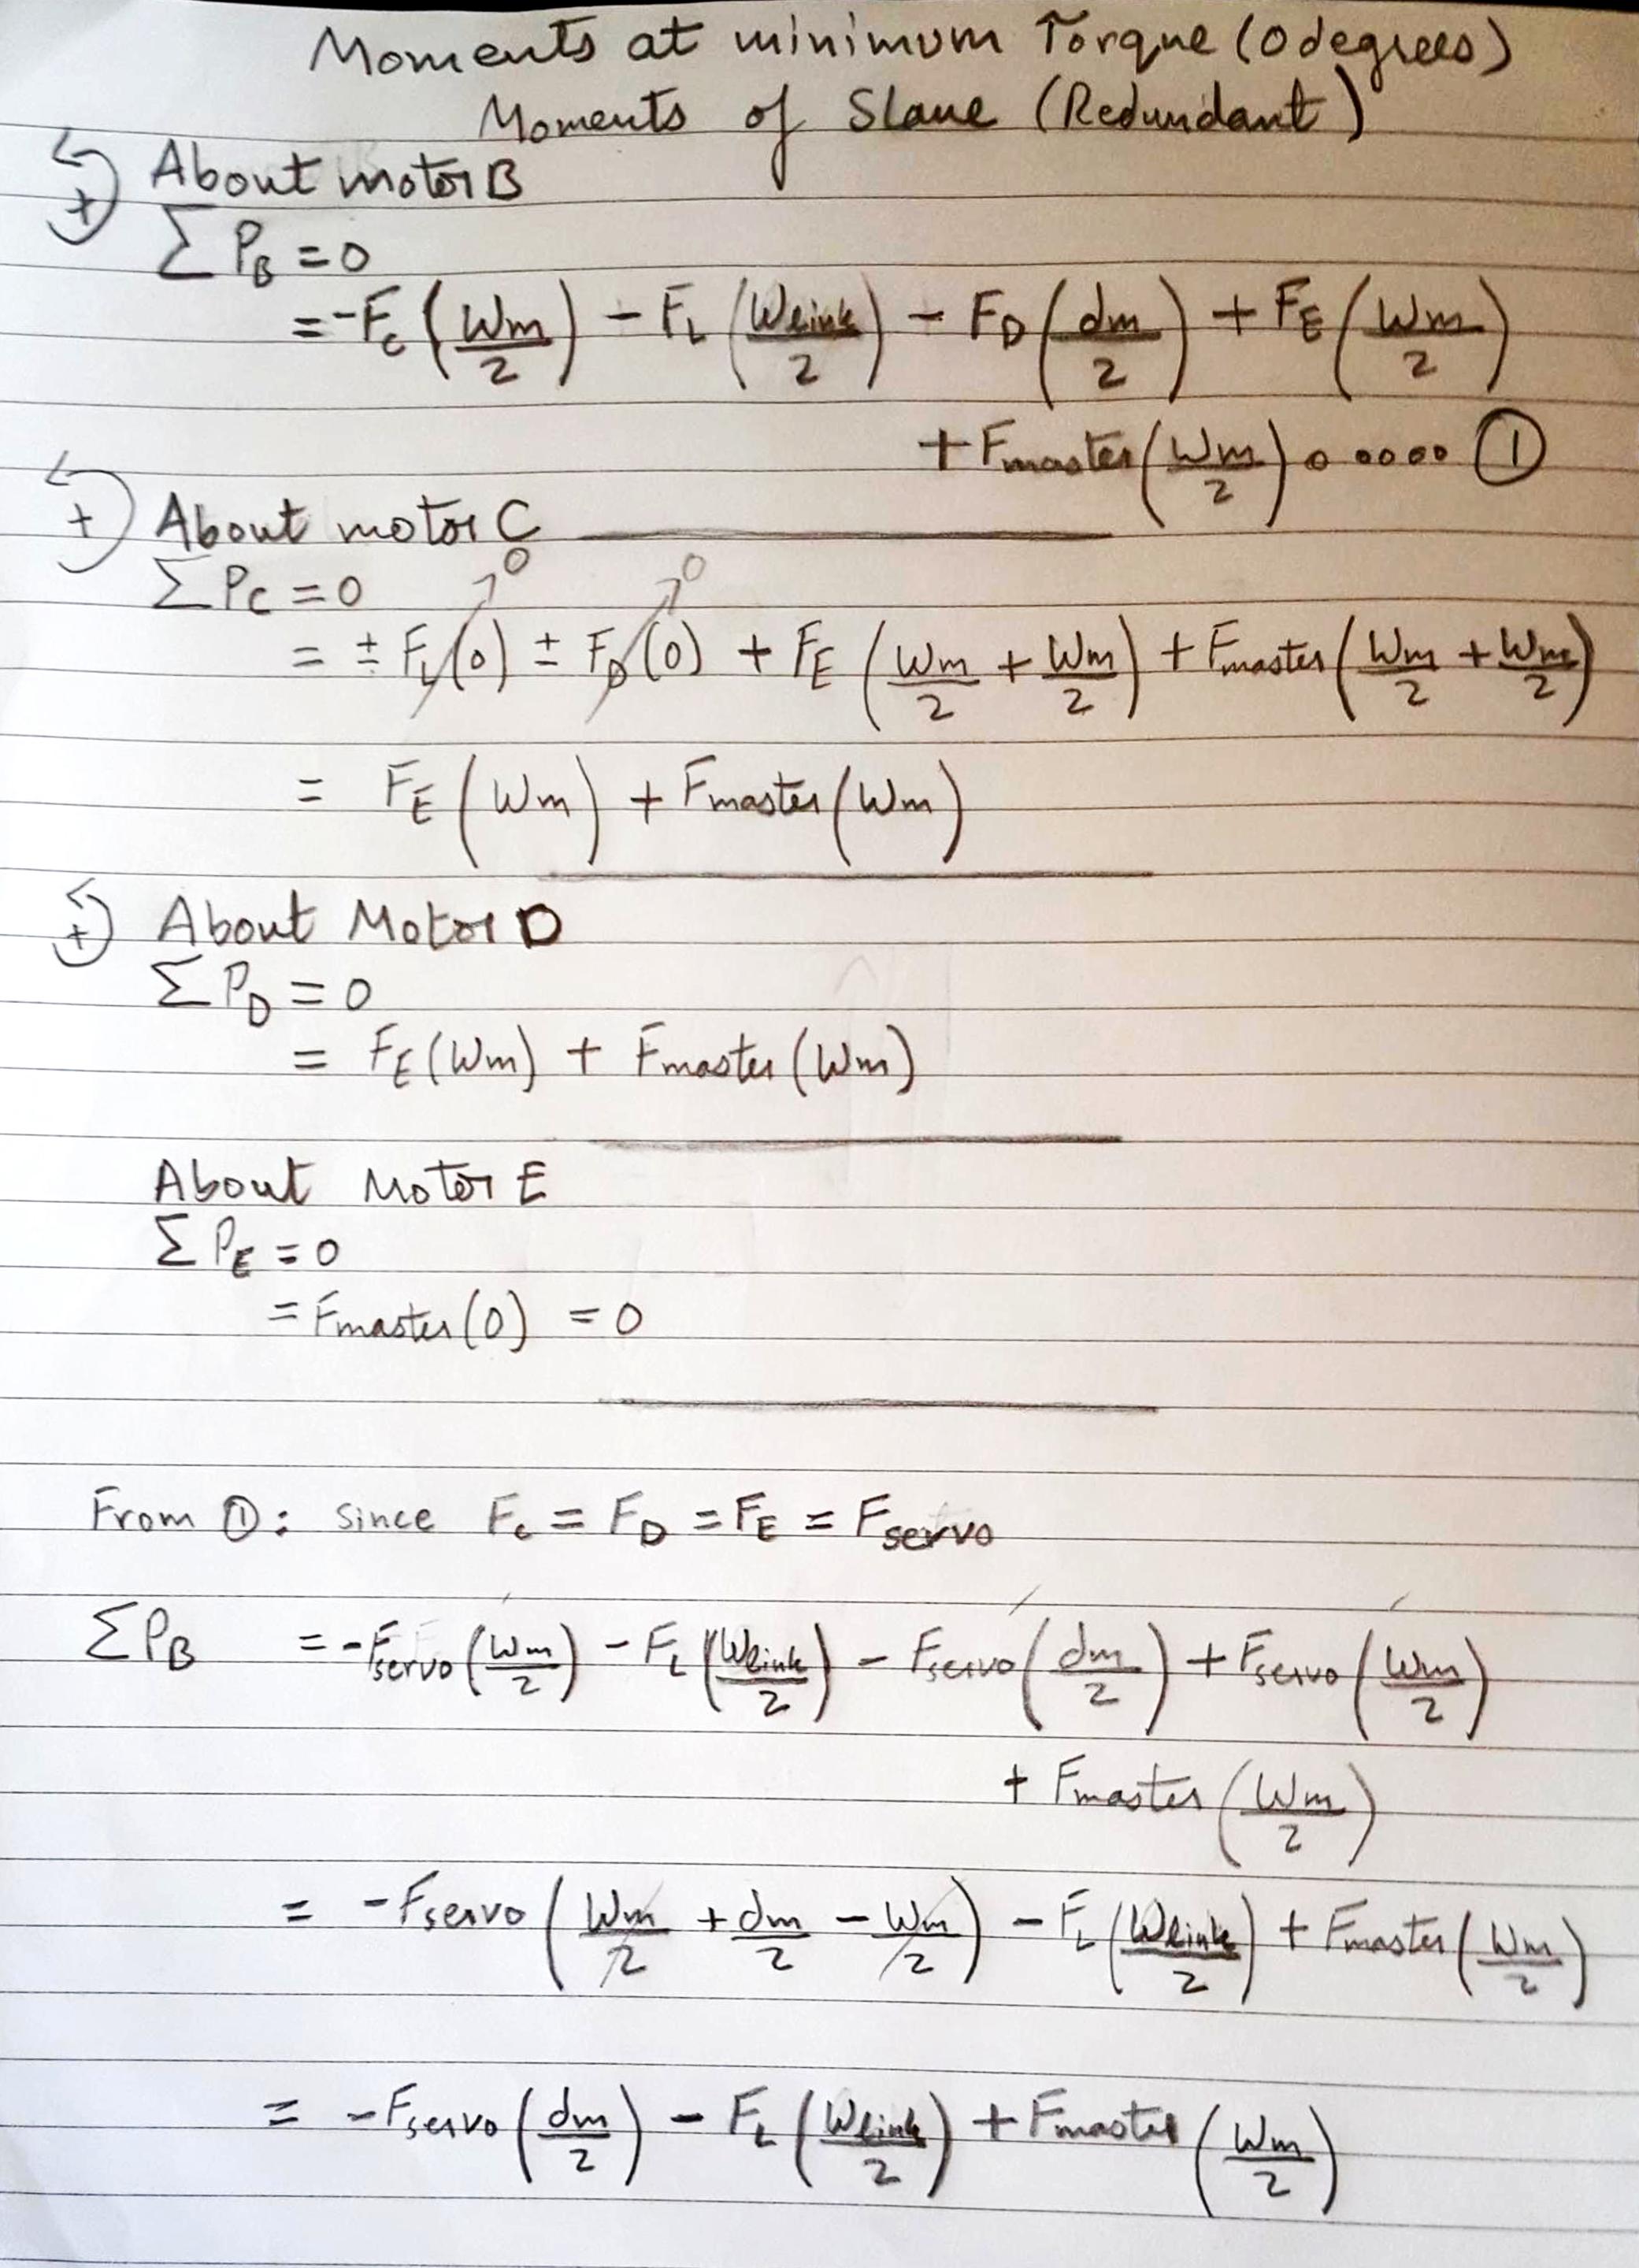 Moments at minimum Torque (0 degrees)
Moments of Slave (Redundant)
+ About motor B
∑ P_B = 0
= -F_c (Wm/2) - F_L (Wlink/2) - F_D (dm/2) + F_E (Wm/2)
+ Fmaster (Wm/2) o oooo ①
+ About motor C
∑ P_C = 0
= ± F_L(0) → 0 ± F_D(0) → 0 + F_E (Wm/2 + Wm/2) + Fmaster (Wm/2 + Wm/2)
= F_E (Wm) + Fmaster (Wm)
+ About Motor D
∑ P_D = 0
= F_E (Wm) + Fmaster (Wm)
About Motor E
∑ P_E = 0
= Fmaster (0) = 0
From ①: since F_c = F_D = F_E = F_servo
∑ P_B = -F_servo (Wm/2) - F_L (Wlink/2) - F_servo (dm/2) + F_servo (Wm/2)
+ Fmaster (Wm/2)
= -F_servo (Wm/2 + dm/2 - Wm/2) - F_L (Wlink/2) + Fmaster (Wm/2)
= -F_servo (dm/2) - F_L (Wlink/2) + Fmaster (Wm/2)